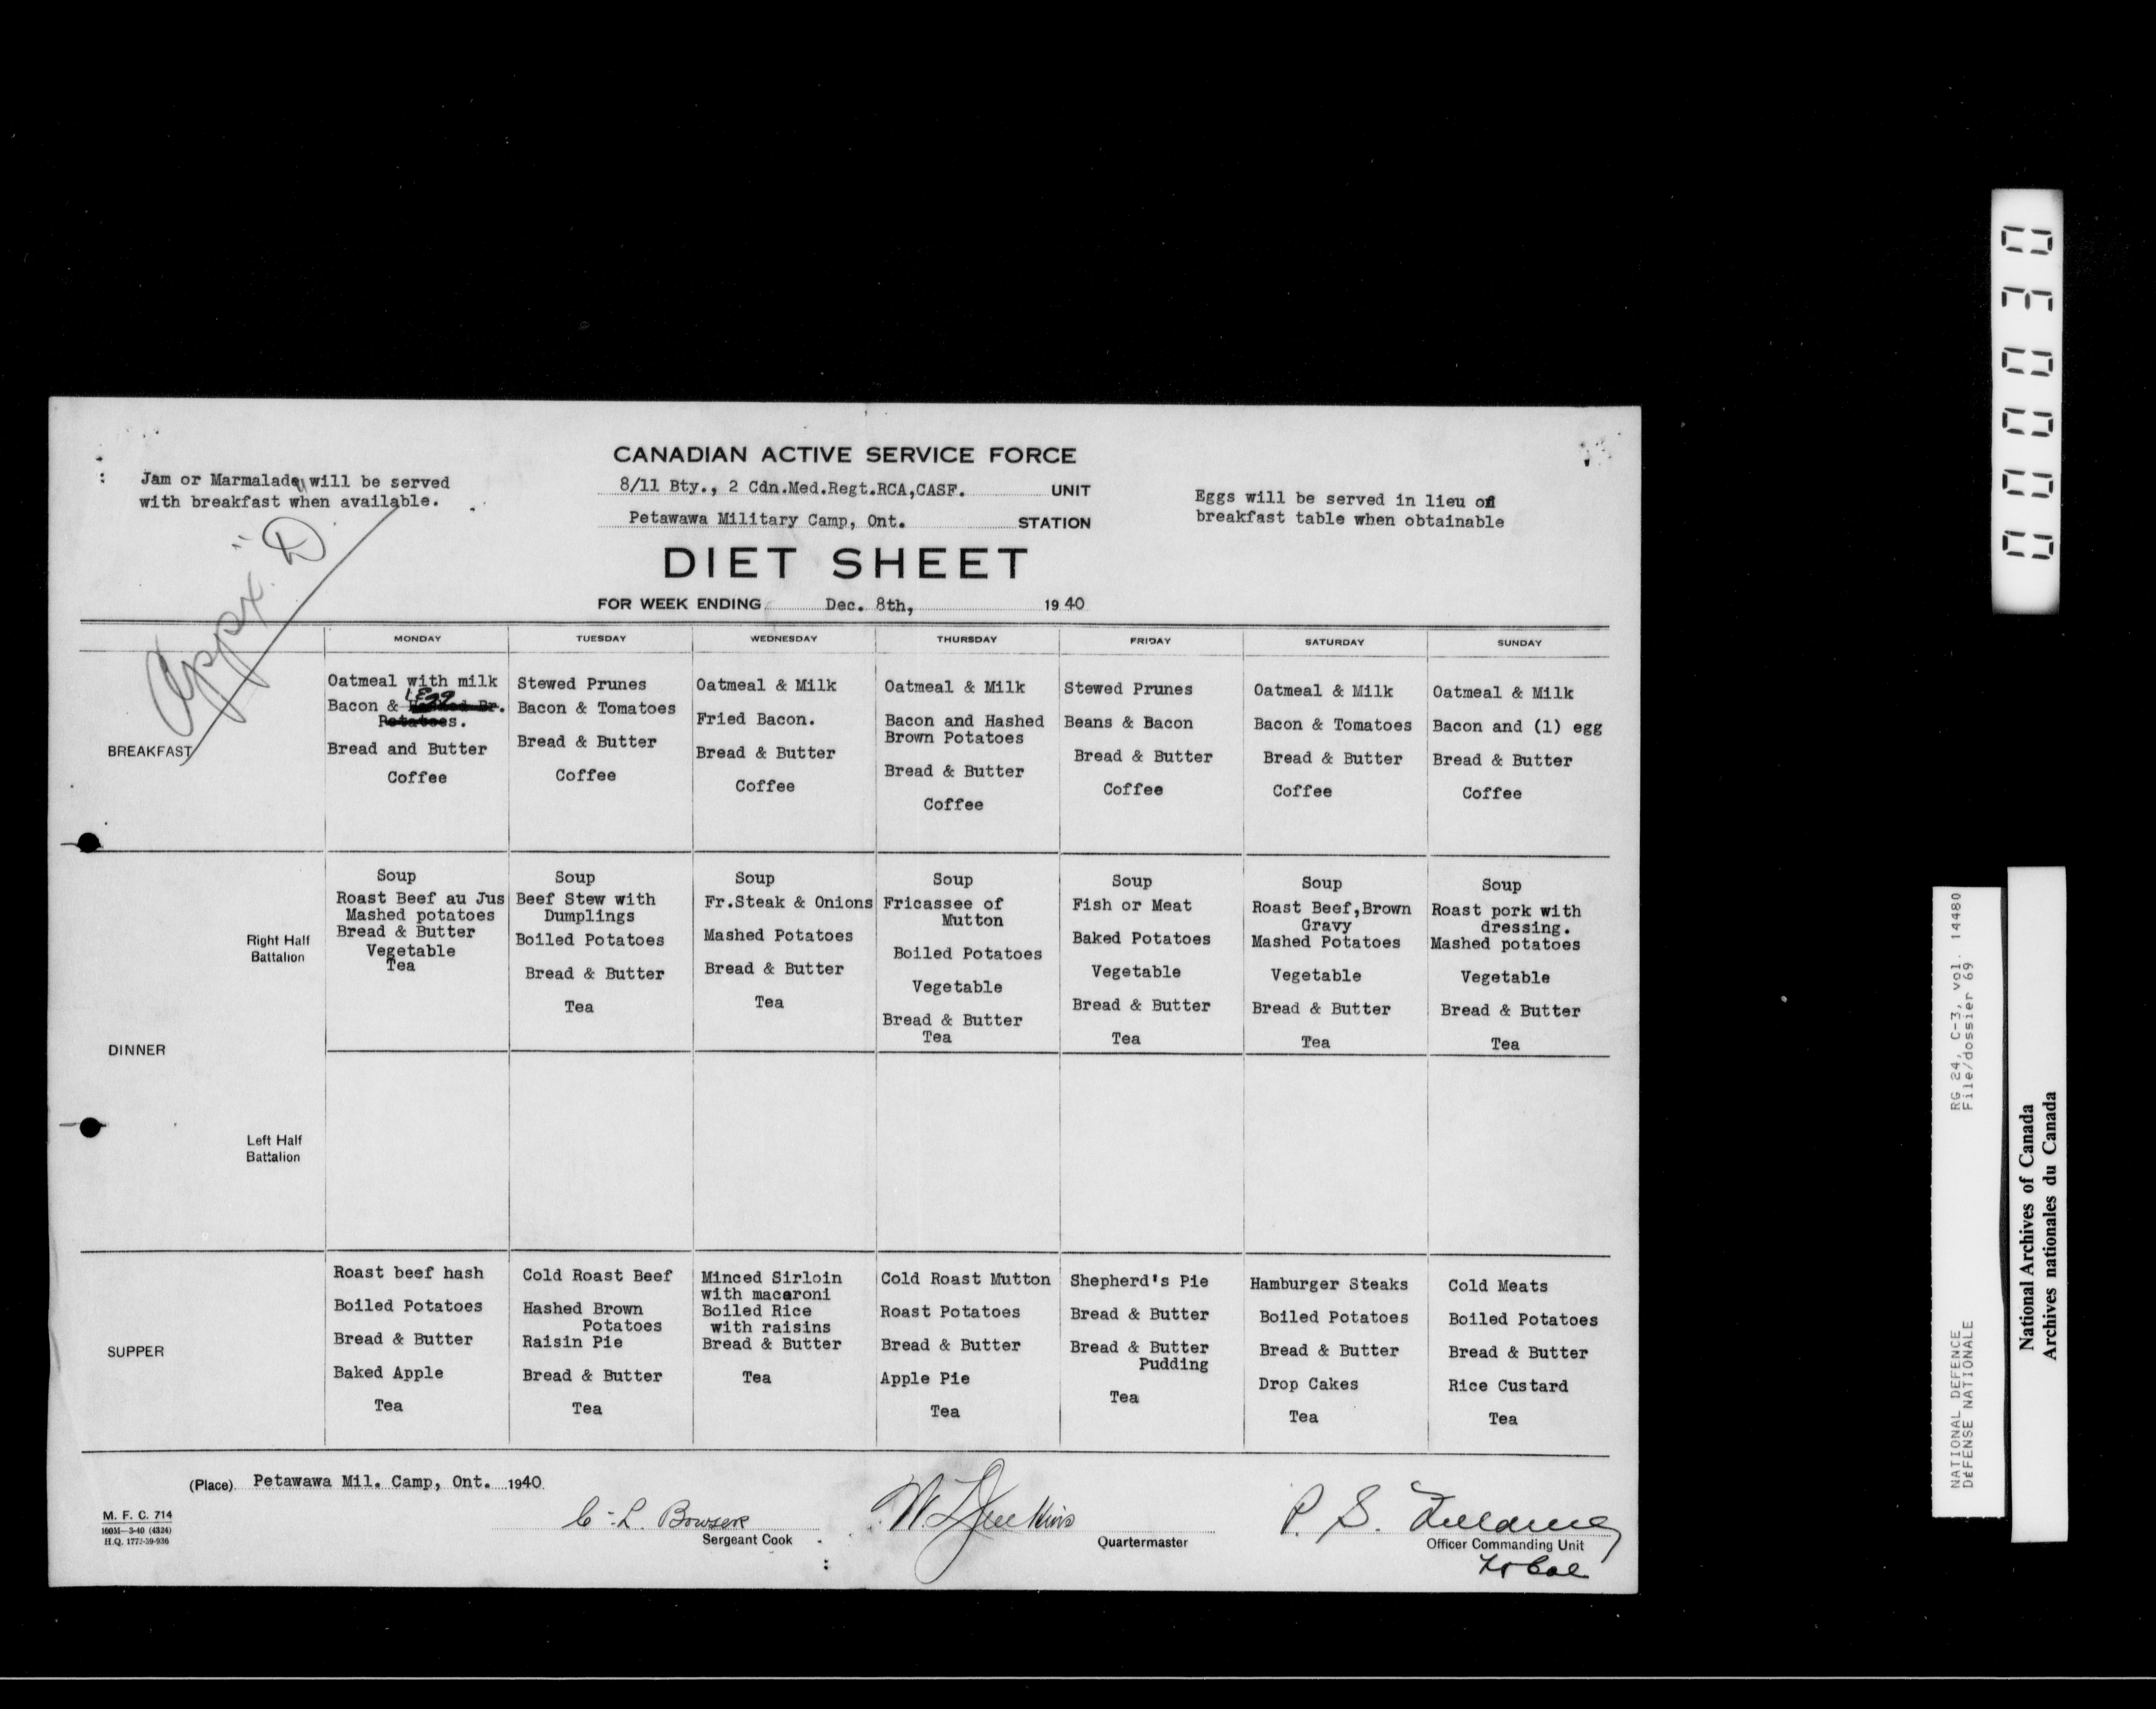 CANADIAN ACTIVE SERVICE FORCE
Jam or Marmalade will be served
with breakfast when available.
8/11 Bty., 2 Cdn.Med.Regt.RCA,CASF. UNIT
Petawawa Military Camp, Ont. STATION
Eggs will be served in lieu on
breakfast table when obtainable
Appx. "D"
DIET SHEET
FOR WEEK ENDING Dec. 8th, 1940
MONDAY TUESDAY WEDNESDAY THURSDAY FRIDAY SATURDAY SUNDAY
BREAKFAST
Oatmeal with milk
1 Egg
Bacon & Hashed Br.
Potatoes.
Bread and Butter
Coffee
Stewed Prunes
Bacon & Tomatoes
Bread & Butter
Coffee
Oatmeal & Milk
Fried Bacon.
Bread & Butter
Coffee
Oatmeal & Milk
Bacon and Hashed
Brown Potatoes
Bread & Butter
Coffee
Stewed Prunes
Beans & Bacon
Bread & Butter
Coffee
Oatmeal & Milk
Bacon & Tomatoes
Bread & Butter
Coffee
Oatmeal & Milk
Bacon and (1) egg
Bread & Butter
Coffee
DINNER
Right Half
Battalion
Soup
Roast Beef au Jus
Mashed potatoes
Bread & Butter
Vegetable
Tea
Soup
Beef Stew with
Dumplings
Boiled Potatoes
Bread & Butter
Tea
Soup
Fr.Steak & Onions
Mashed Potatoes
Bread & Butter
Tea
Soup
Fricassee of
Mutton
Boiled Potatoes
Vegetable
Bread & Butter
Tea
Soup
Fish or Meat
Baked Potatoes
Vegetable
Bread & Butter
Tea
Soup
Roast Beef,Brown
Gravy
Mashed Potatoes
Vegetable
Bread & Butter
Tea
Soup
Roast pork with
dressing.
Mashed potatoes
Vegetable
Bread & Butter
Tea
Left Half
Battalion
SUPPER
Roast beef hash
Boiled Potatoes
Bread & Butter
Baked Apple
Tea
Cold Roast Beef
Hashed Brown
Potatoes
Raisin Pie
Bread & Butter
Tea
Minced Sirloin
with macaroni
Boiled Rice
with raisins
Bread & Butter
Tea
Cold Roast Mutton
Roast Potatoes
Bread & Butter
Apple Pie
Tea
Shepherd's Pie
Bread & Butter
Bread & Butter
Pudding
Tea
Hamburger Steaks
Boiled Potatoes
Bread & Butter
Drop Cakes
Tea
Cold Meats
Boiled Potatoes
Bread & Butter
Rice Custard
Tea
(Place) Petawawa Mil. Camp, Ont. 1940
M. F. C. 714
160M—3-40 (4324)
H.Q. 1772-39-936
C. L. Bowser
Sergeant Cook
Jenkins
Quartermaster
P. S.
Officer Commanding Unit
Lt Col
00030
RG 24, C-3, vol. 14480
File/dossier 69
NATIONAL DEFENCE
DÉFENSE NATIONALE
National Archives of Canada
Archives nationales du Canada